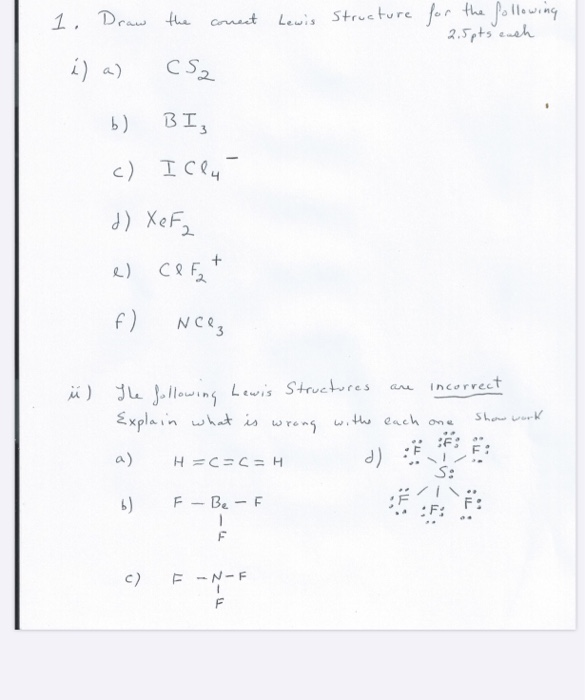 1. Draw the correct Lewis Structure for the following
2.5pts each
i) a) CS₂
b) BI₃
c) ICl₄⁻
d) XeF₂
e) ClF₂⁺
f) NCl₃
ii) The following Lewis Structures are incorrect
Explain what is wrong with each one Show work
a) H=C=C=H
b) F-Be-F
F
c) F-N-F
F
d) :F: :F: :F:
S:
:F: :F: :F: